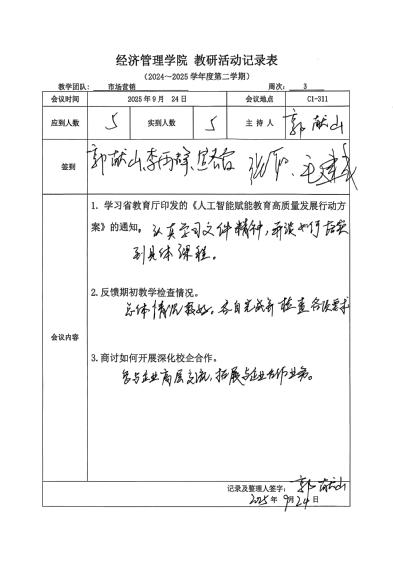 经济管理学院 教研活动记录表
（2024～2025学年度第二学期）
教学团队： 市场营销 周次： 3
会议时间 2025年9月 24日 会议地点 C1-311
应到人数 5 实到人数 5 主 持 人 郭献山
签到 郭献山 李雨
1. 学习省教育厅印发的《人工智能赋能教育高质量发展行动
方案》的通知。认真学习文件精神，研谈如何落实
到具体课程。
2. 反馈期初教学检查情况。
总体情况较好。各自完成并检查各项要求
会议内容
3. 商讨如何开展深化校企合作。
多与企业高层交流，拓展与企业合作业务。
记录及整理人签字： 郭献山
2025年 9月24日